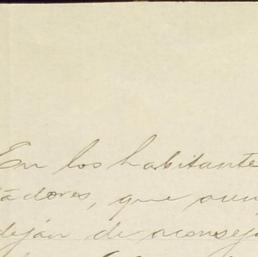 En los habitante
tadores, que aun
dejan de aconseja